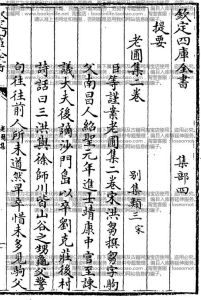 欽定四庫全書　集部四
提要
老圃集二卷　別集類三宋
臣等謹案老圃集二卷宋洪芻撰芻字駒
父南昌人紹聖元年進士靖康中官至諫
議大夫後謫沙門島以卒劉克莊後村
詩話曰三洪與徐師川皆山谷之甥龜父警
句往往前人所未道然早卒惜未多見駒父